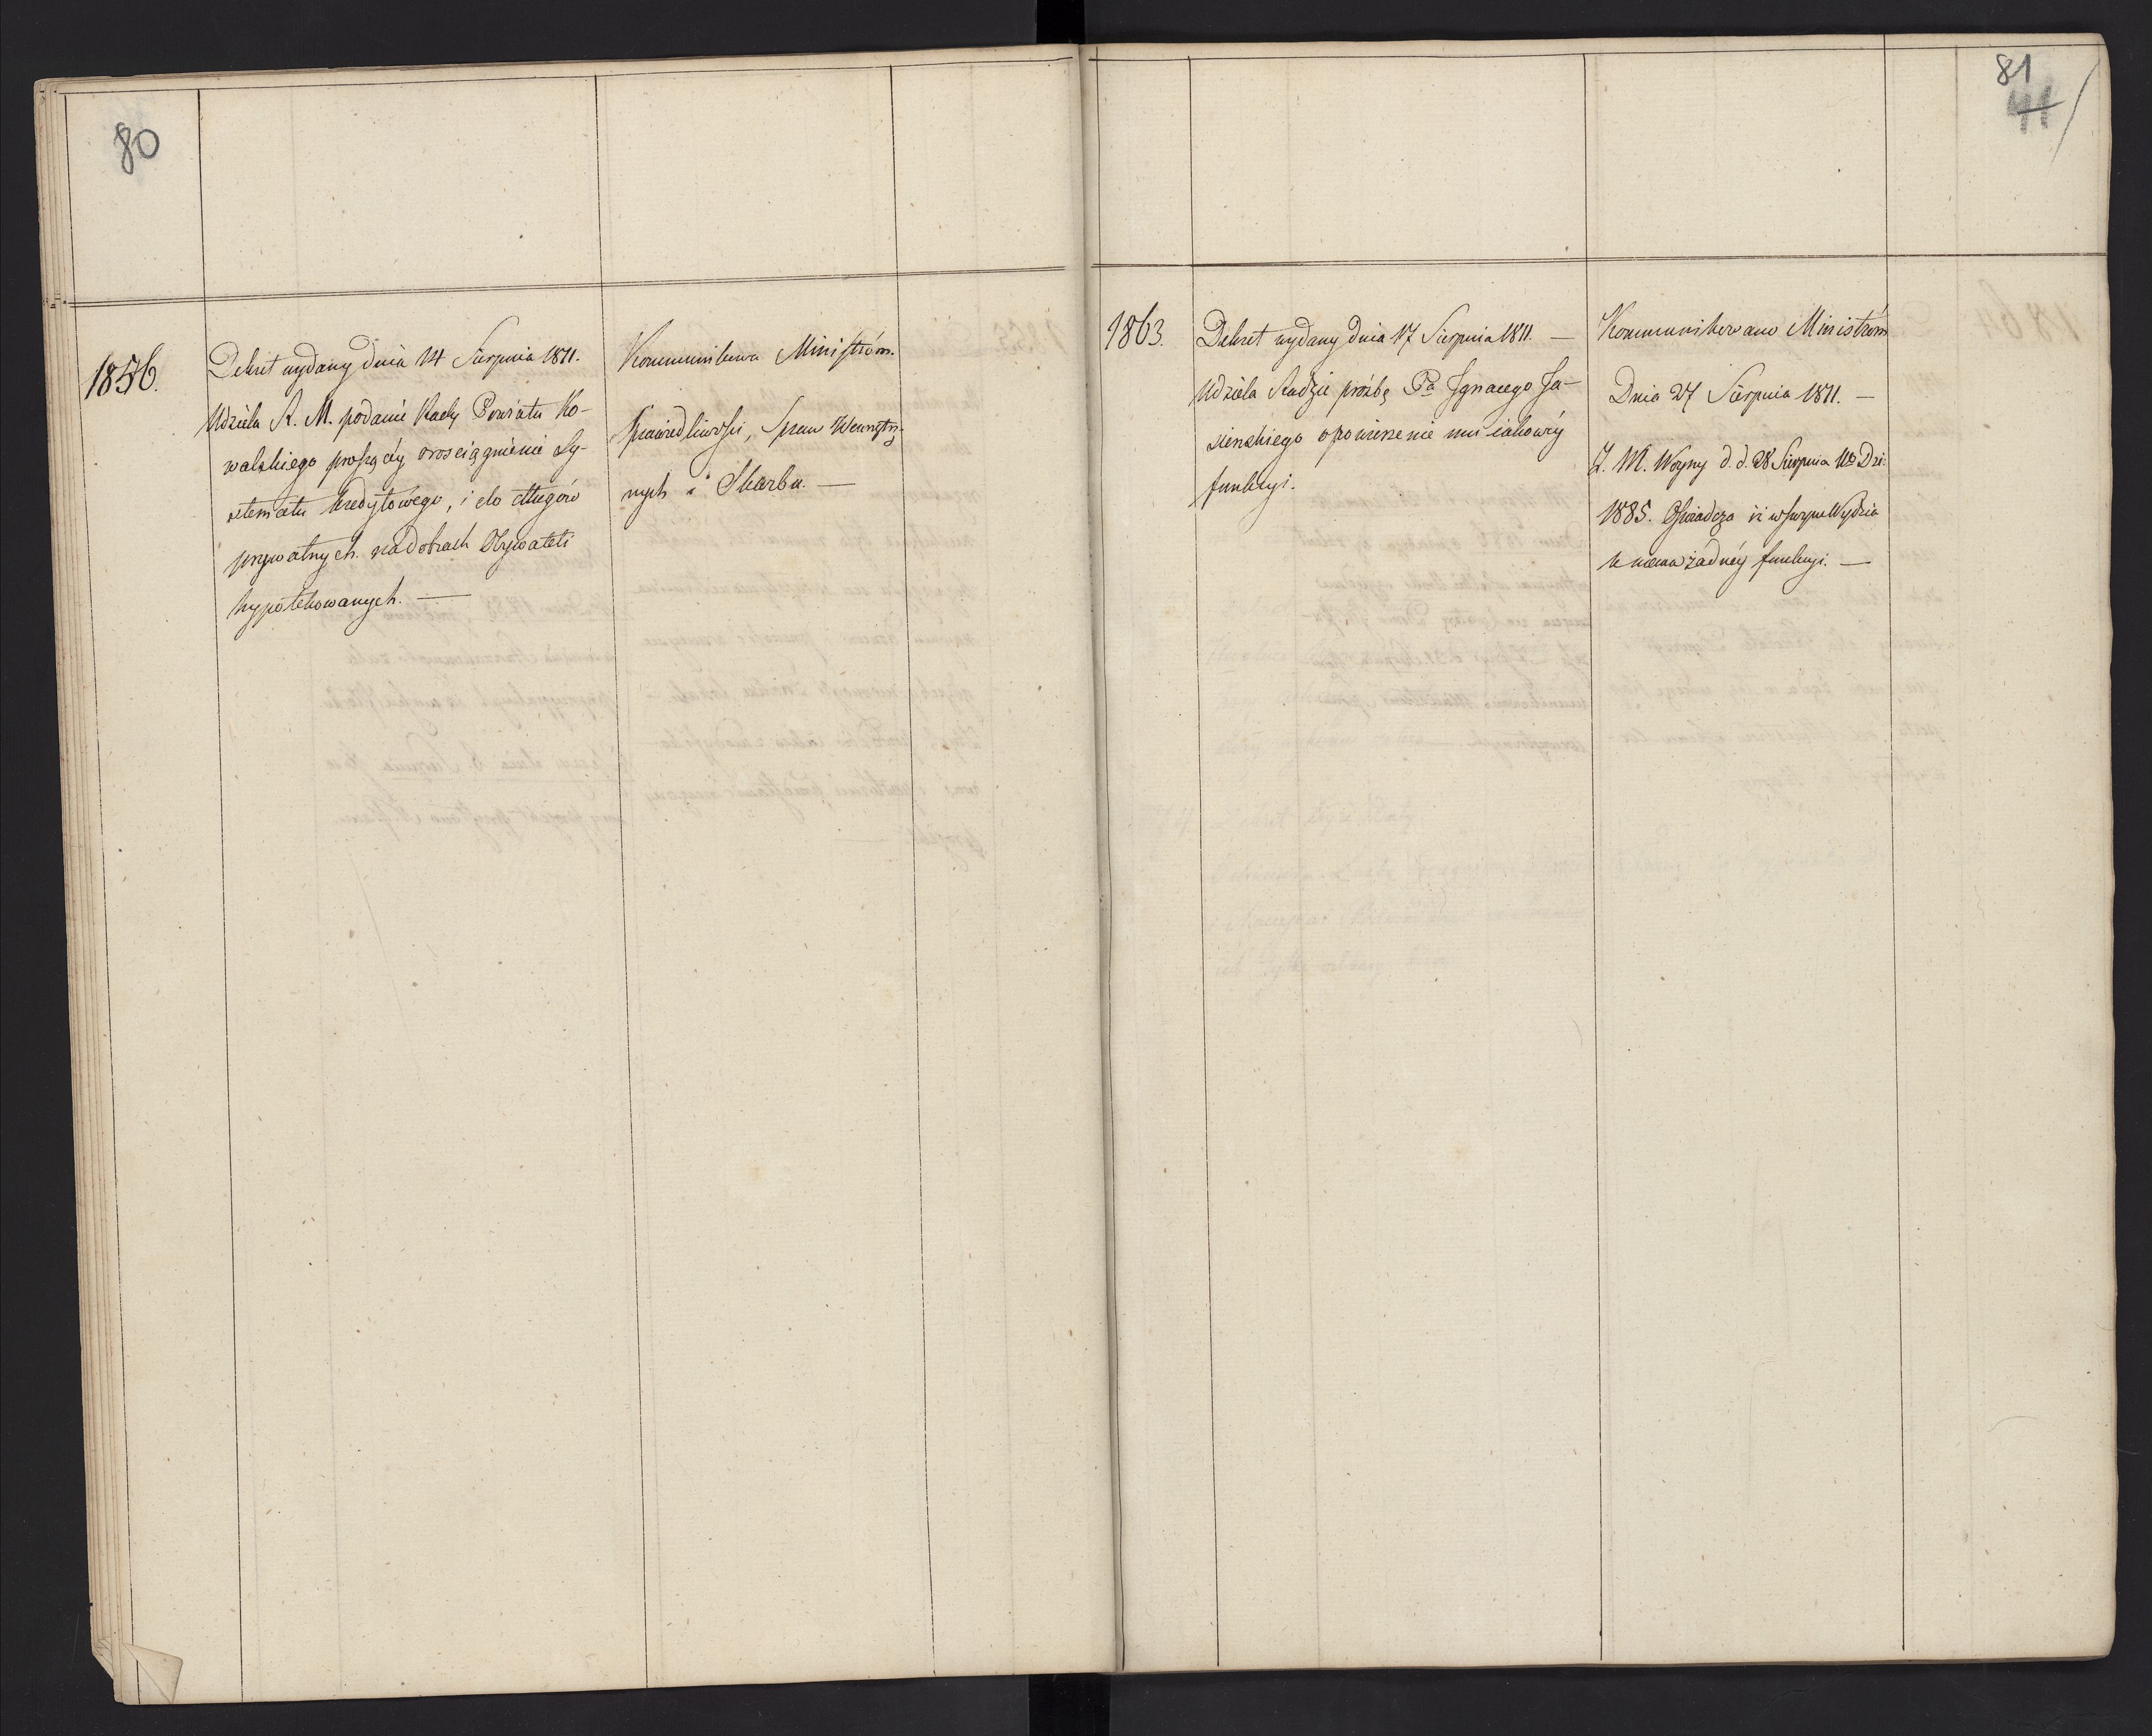 80
1856.
Dekret wydany dnia 14 Sierpnia 1811.
Udziela R. M. podanie Rady Powiatu Ko-
walskiego proszącey o rosciągnienie Sy-
stematu kredytowego, i do długów
prywatnych na dobrach Obywateli
hypotekowanych. —
Kommunikowa Ministróm.
Sprawiedliwości, Spraw Wewnętrz-
nych i Skarbu. —
81
41
1863.
Dekret wydany dnia 17 Sierpnia 1811. —
Udziela Radzie prożbę Pa Ignacego Ja-
sienskiego o powierzenie mu iakowéy
funkcyi.
Kommunikowano Ministrom
Dnia 27 Sierpnia 1811. —
Z. M. Woyny d. d. 28 Sierpnia No Dzi:
1885. Oswiadcza iż w swym Wydzia
le niema żadnéy funkcyi. —